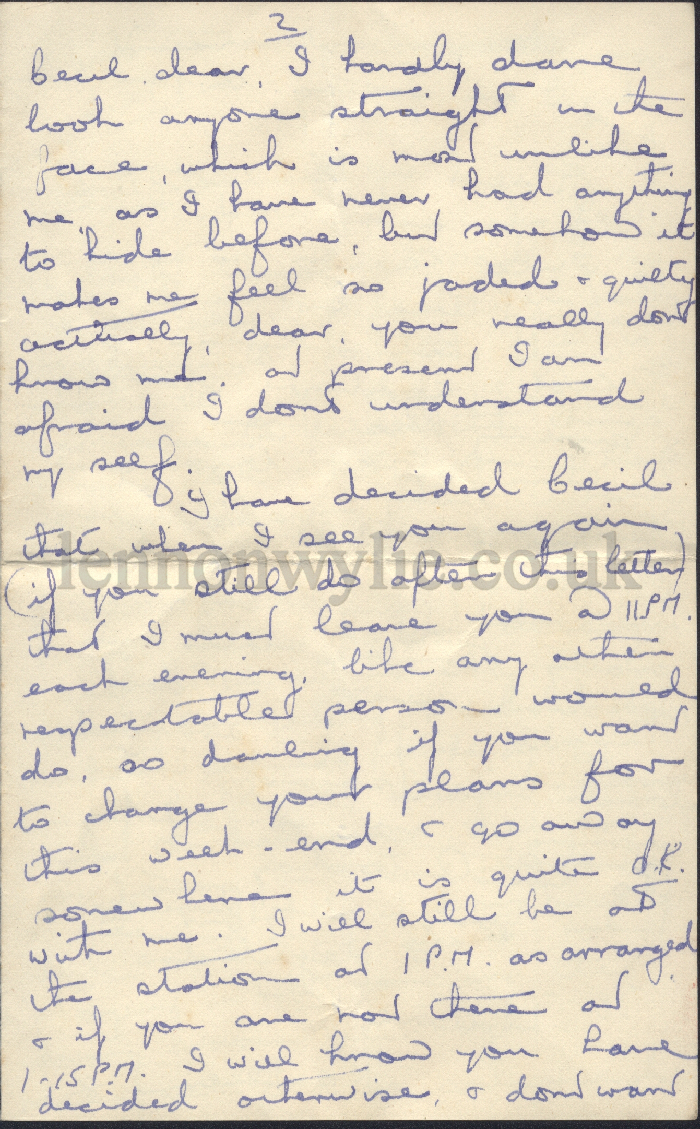 2
Cecil dear, I hardly dare
look anyone straight in the
face, which is most unlike
me, as I have never had anything
to hide before, but somehow it
makes me feel so jaded & guilty
actually, dear, you really dont
know me, at present I am
afraid I dont understand
my self.
I have decided Cecil
that when I see you again
(if you still do after this letter)
that I must leave you at 11 P.M.
each evening, like any other
respectable person would
do, so darling if you want
to change your plans for
this week-end, & go away
somewhere it is quite O.K.
with me. I will still be at
the station at 1 P.M. as arranged
& if you are not there at
1-15 P.M. I will know you have
decided otherwise, & dont want
lennonwylie.co.uk